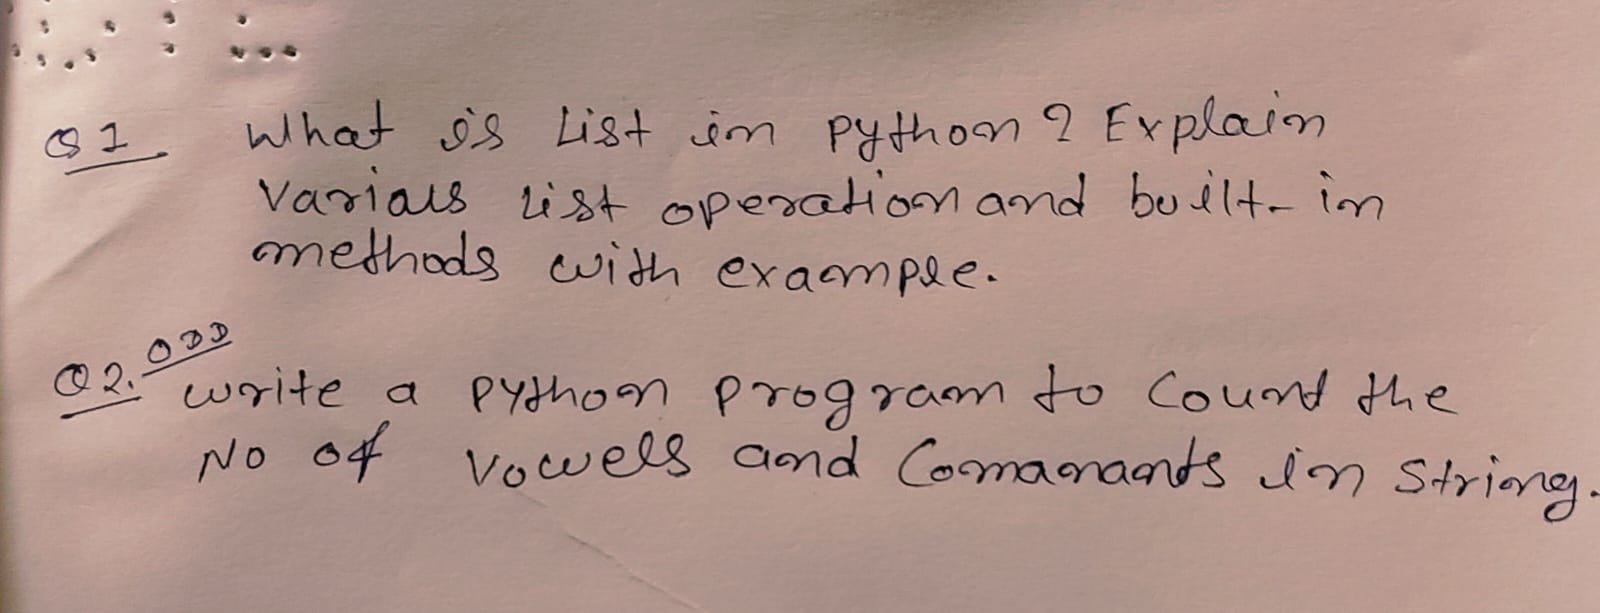 Q1 What is List in python? Explain
Variaus list operation and built-in
methods with example.
Q2. ODD
write a python program to Count the
No of Vowels and Comanants in String.